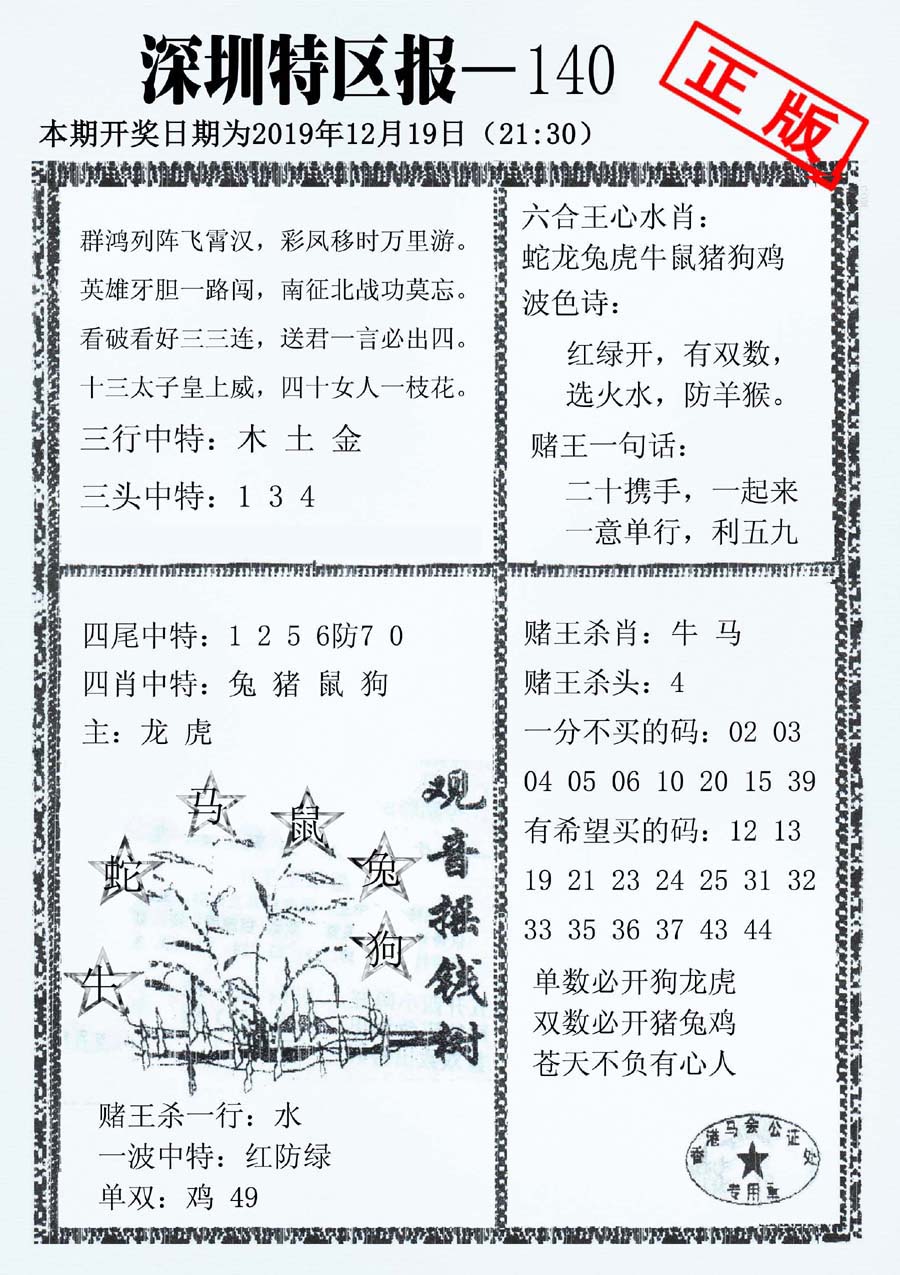 深圳特区报—140
正版
本期开奖日期为2019年12月19日（21:30）
群鸿列阵飞霄汉，彩凤移时万里游。
英雄牙胆一路闯，南征北战功莫忘。
看破看好三三连，送君一言必出四。
十三太子皇上威，四十女人一枝花。
三行中特：木 土 金
三头中特：1 3 4
六合王心水肖：
蛇龙兔虎牛鼠猪狗鸡
波色诗：
红绿开，有双数，
选火水，防羊猴。
赌王一句话：
二十携手，一起来
一意单行，利五九
四尾中特：1 2 5 6防7 0
四肖中特：兔 猪 鼠 狗
主：龙 虎
马
鼠
蛇
兔
狗
牛
观音摇钱树
赌王杀一行：水
一波中特：红防绿
单双：鸡 49
赌王杀肖：牛 马
赌王杀头：4
一分不买的码：02 03
04 05 06 10 20 15 39
有希望买的码：12 13
19 21 23 24 25 31 32
33 35 36 37 43 44
单数必开狗龙虎
双数必开猪兔鸡
苍天不负有心人
香港马会公证处
专用章